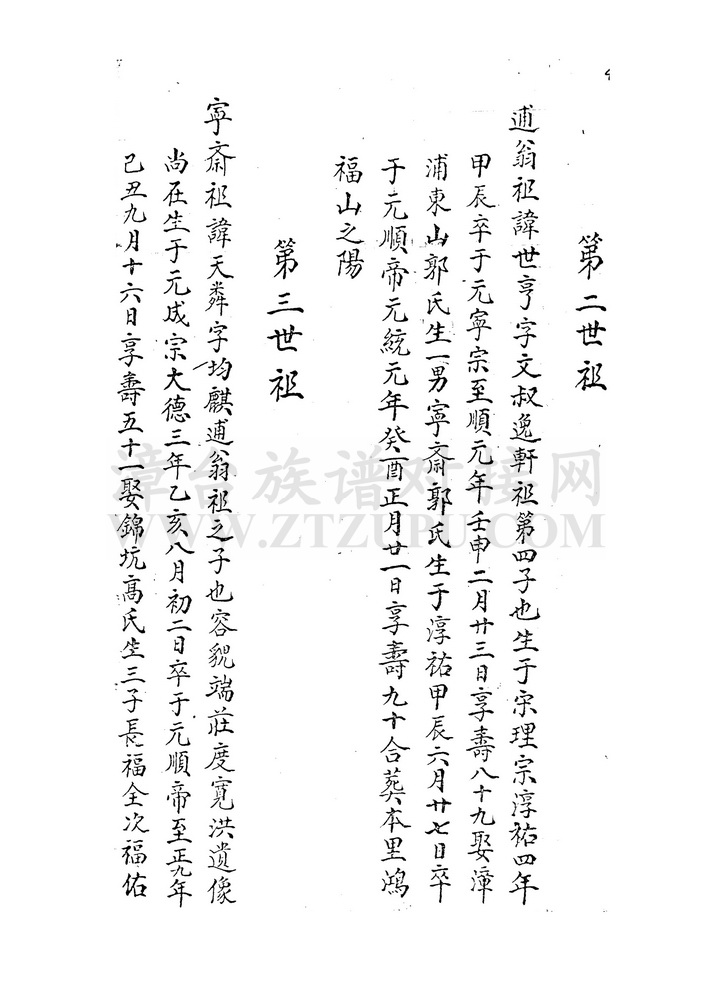 4
第二世祖
逋翁祖諱世亨字文叔逸軒祖第四子也生于宋理宗淳祐四年
甲辰卒于元寧宗至順元年壬申二月廿三日享壽八十九娶漳
浦東山郭氏生一男寧齋郭氏生于淳祐甲辰六月廿七日卒
于元順帝元統元年癸酉正月廿一日享壽九十合葬本里鴻
福山之陽
第三世祖
寧齋祖諱天粦字均麒逋翁祖之子也容貌端莊度寬洪遺像
尚在生于元成宗大德三年乙亥八月初二日卒于元順帝至正九年
己丑九月十六日享壽五十一娶錦坑高氏生三子長福全次福佑
漳台族谱对接网
WWW.ZTZUPU.COM